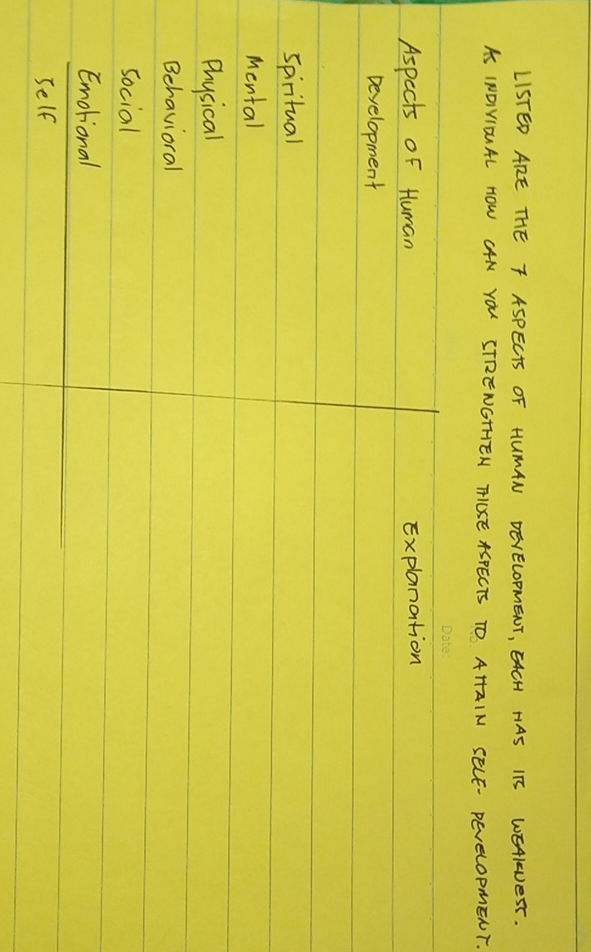 LISTED ARE THE 7 ASPECTS OF HUMAN DEVELOPMENT, EACH HAS ITS WEAKNESS.
AS INDIVIDUAL HOW CAN YOU STRENGTHEN THOSE ASPECTS TO ATTAIN SELF-DEVELOPMENT.
Date:
Aspects of Human Explanation
Development
Spiritual
Mental
Physical
Behavioral
Social
Emotional
Self